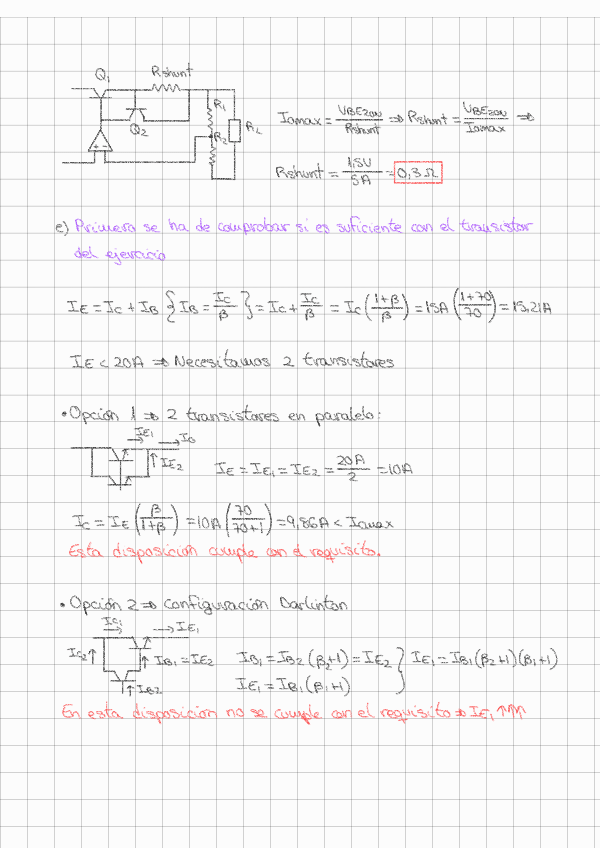 Q₁ Rshunt
R₁
Q₂ R₂ RL
+ -
Iomax = VBE2ON/Rshunt ⇒ Rshunt = VBE2ON/Iomax ⇒
Rshunt = 1,5V/5A = 0,3Ω
e) Primero se ha de comprobar si es suficiente con el transistor
del ejercicio
IE = IC + IB { IB = IC/β } = IC + IC/β = IC (1+β/β) = 15A (1+70/70) = 15,21A
IE < 20A ⇒ Necesitamos 2 transistores
• Opción 1 ⇒ 2 transistores en paralelo:
IE₁ Io
IE2
IE = IE₁ = IE₂ = 20A/2 = 10A
IC = IE (β/1+β) = 10A (70/70+1) = 9,86A < Iomax
Esta disposición cumple con el requisito.
• Opción 2 ⇒ Configuración Darlinton
IC₁ IE₁
IC₂ ↑ ↑ IB₁ = IE2
↑ IB2
IB₁ = IB2 (β₂+1) = IE2 } IE₁ = IB₁(β₂+1)(β₁+1)
IE₁ = IB₁ (β₁+1)
En esta disposición no se cumple con el requisito ⇒ IE₁ ↑↑↑